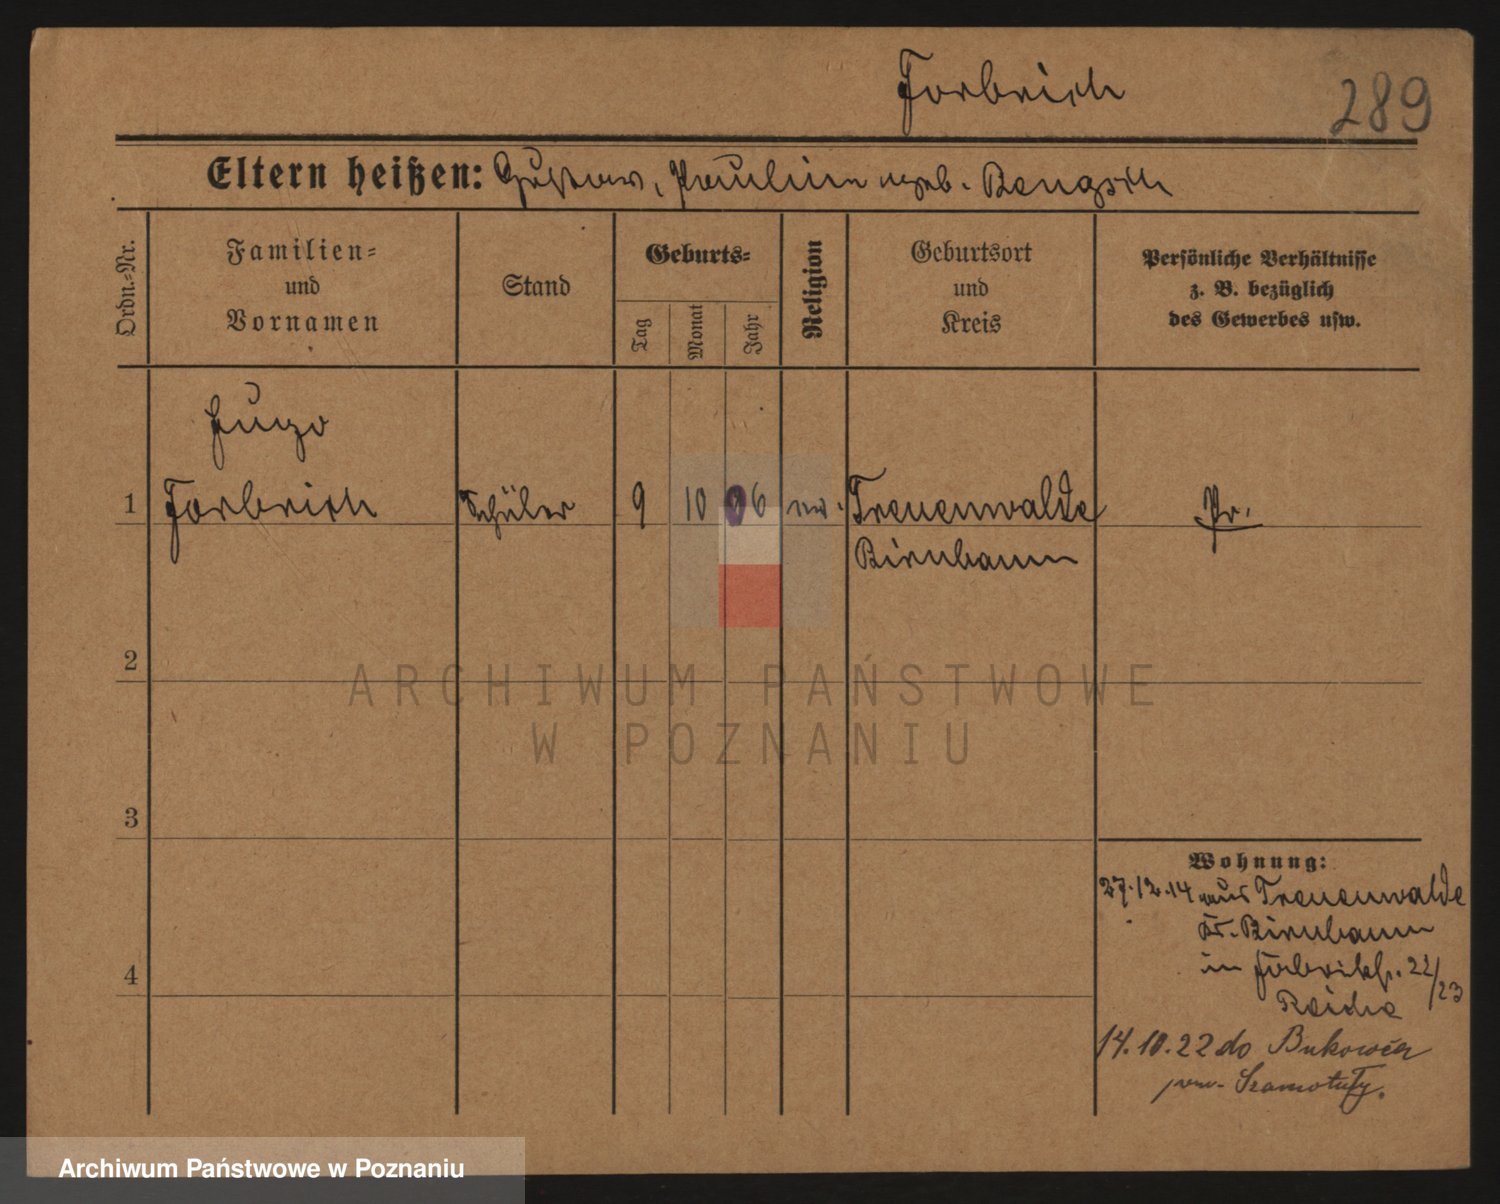 Forbrich
289
Eltern heißen: Gustav, Pauline geb. Bengsch
Ordn.-Nr.
Familien-
und
Vornamen
Stand
Geburts-
Tag
Monat
Jahr
Religion
Geburtsort
und
Kreis
Persönliche Verhältnisse
z. B. bezüglich
des Gewerbes usw.
Hugo
1 Forbrich Schüler 9 10 06 ev. Treuenwalde Pr.
Birnbaum
2
3
4
Wohnung:
27.12.14 aus Treuenwalde
Kr. Birnbaum
in Fabrikstr. 22/23
14.10.22 do Bukowiec
pow. Szamotuły.
ARCHIWUM PAŃSTWOWE
W POZNANIU
Archiwum Państwowe w Poznaniu